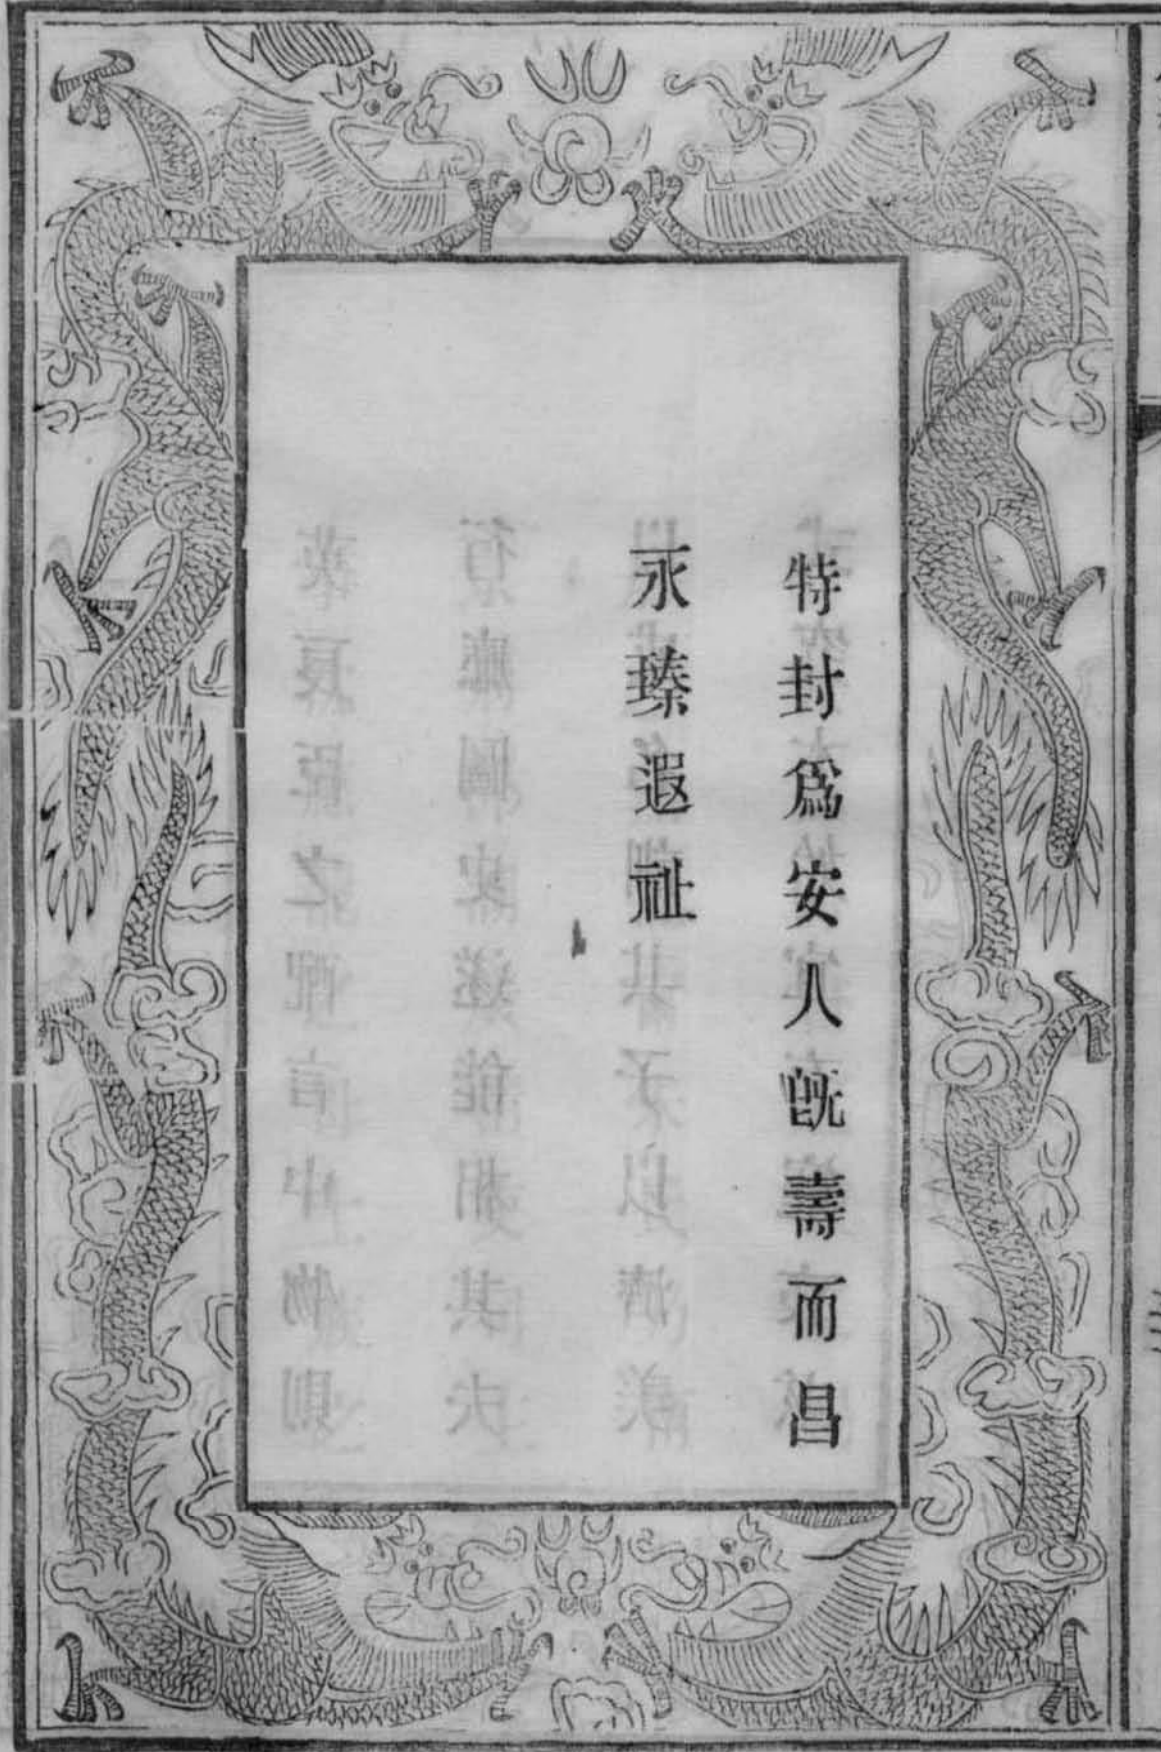 特封爲安人旣壽而昌
永臻遐祉